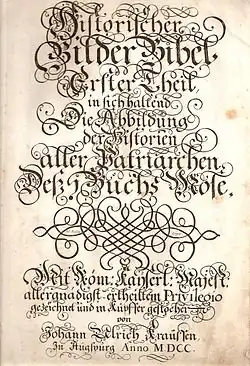 Historischer
Bilder Bibel.
Erster Theil.
in sich haltend
Die Abbildung
der Historien
aller Patriarchen
Deß I Buchs Mose.
Mit Röm: Kaÿserl: Majest:
allergnädigst-ertheiltem Privilegio
gezeichnet und in Kupffer gestochen
von
Johann Ulrich Kraussen
In Augspurg Anno MDCC.